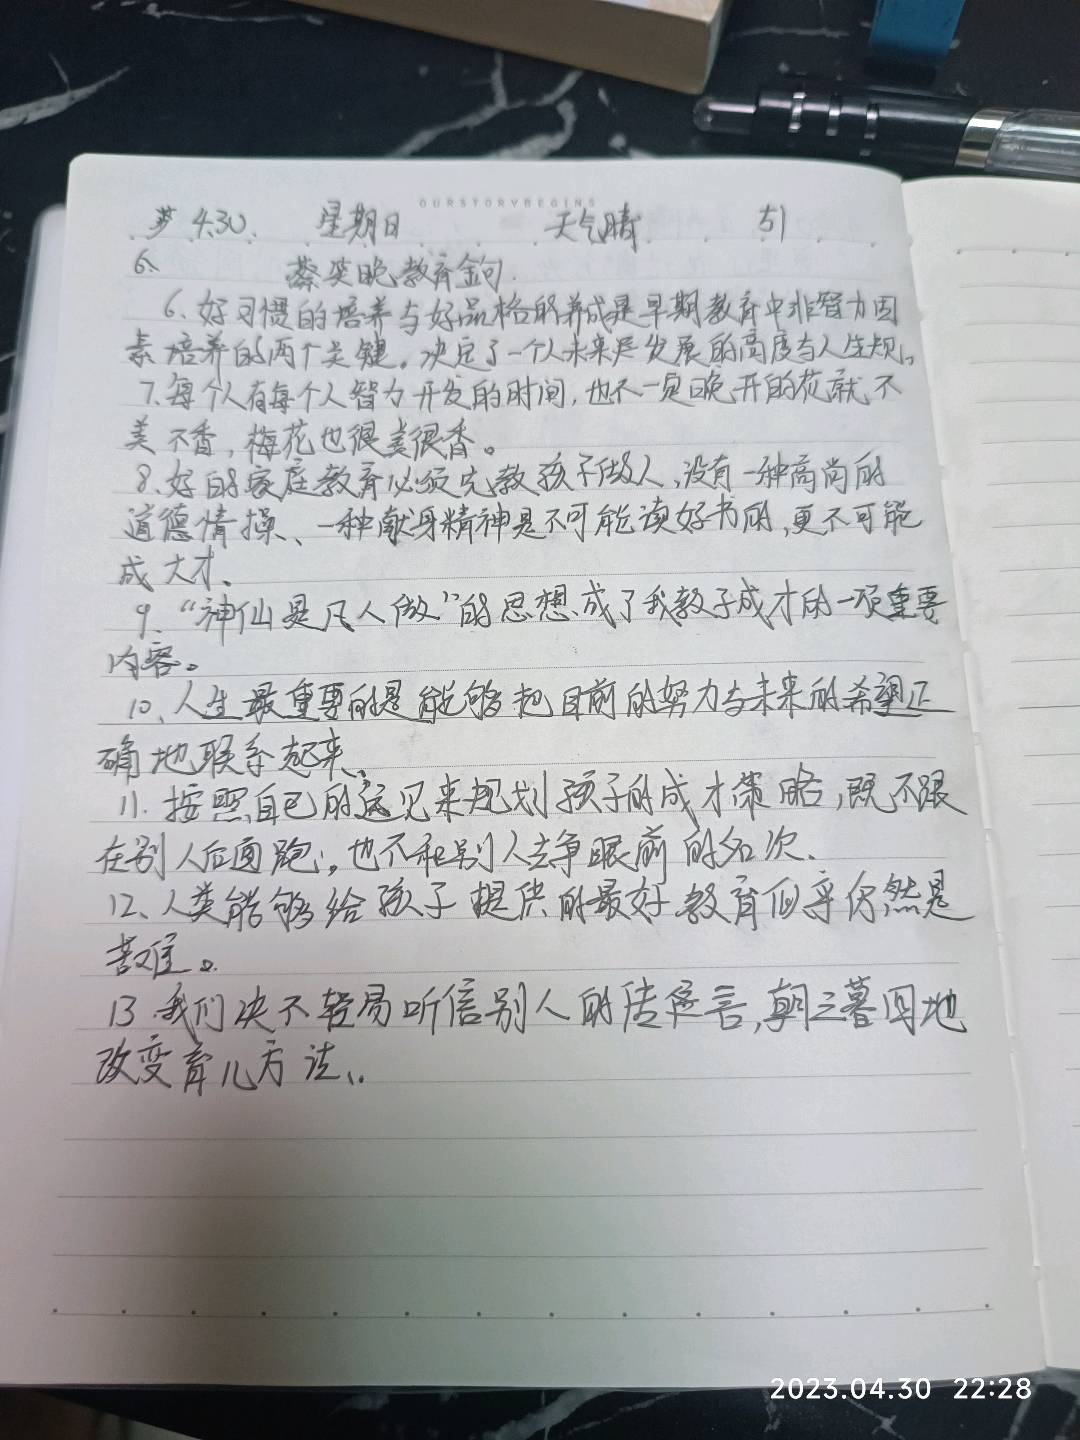 OURSTORYBEGINS
4.30. 星期日 天气晴 51
6、 蔡笑晚教育金句
6、好习惯的培养与好品格的养成是早期教育中非智力因
素培养的两个关键。决定了一个人未来发展的高度与人生
7、每个人有每个人智力开发的时间,也不一定晚开的花就不
美不香,梅花也很美很香。
8、好的家庭教育必须先教孩子做人、没有一种高尚的
道德情操、一种献身精神是不可能读好书的,更不可能
成大才、
9、“神仙是凡人做”的思想成了我教子成才的一项重要
内容。
10、人生最重要的是能够把目前的努力与未来的希望正
确地联系起来、
11、按照自己的远见来规划孩子的成才策略,既不跟
在别人后面跑,也不和别人去争眼前的名次、
12、人类能够给孩子提供的最好教育似乎仍然是
苦难。
13、我们决不轻易听信别人的传言,朝三暮四地
改变育儿方法、
2023.04.30 22:28